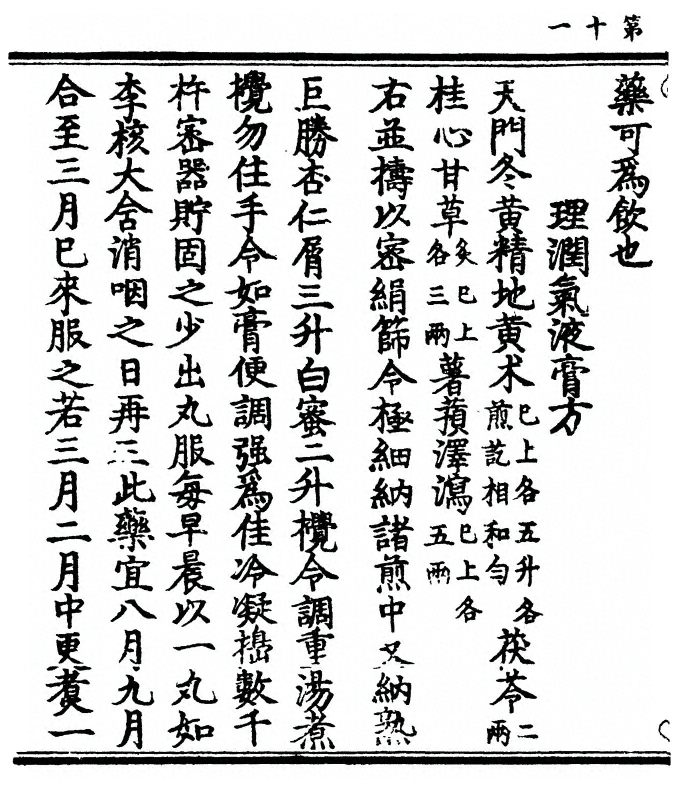 第十一
藥可為飲也
理潤氣液膏方
天門冬黃精地黃术已上各五升各煎訖相和勻茯苓二兩
桂心甘草炙已上各三兩薯蕷澤瀉已上各五兩
右並擣以密絹篩令極細納諸煎中又納熟
巨勝杏仁屑三升白蜜二升攪令調重湯煮
攪勿住手令如膏便調强為佳冷凝擣數千
杵密器貯固之少出丸服每早晨以一丸如
李核大含消咽之日再三此藥宜八月九月
合至三月已來服之若三月二月中更煑一